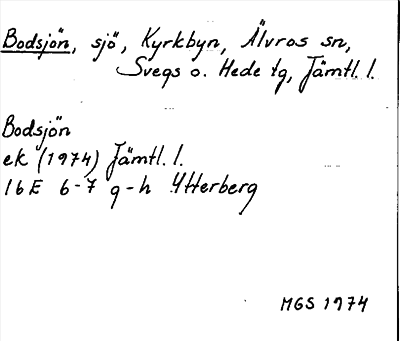 Bodsjön, sjö, Kyrkbyn, Älvros sn,
Svegs o. Hede tg, Jämtl. l.
Bodsjön
ek (1974) Jämtl. l.
16E 6-7 g-h Ytterberg
MGS 1974